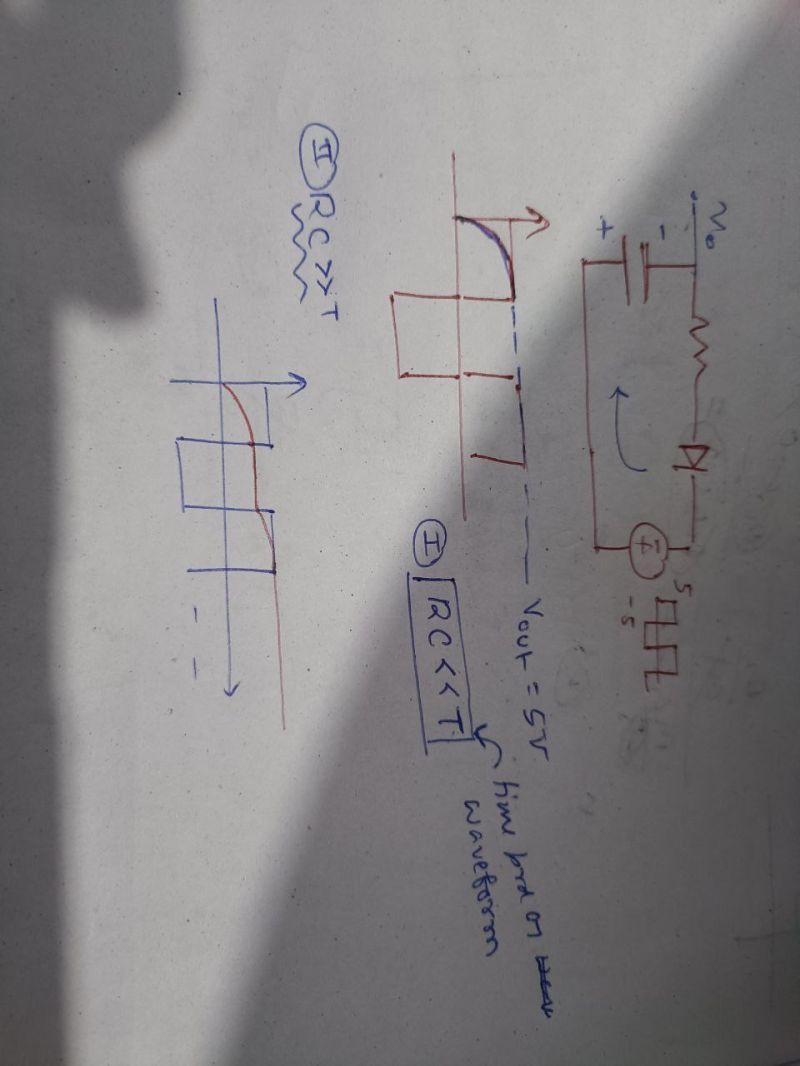 Vo
-
+
5
-5
- +
Vout = 5V
I RC << T
time prd of
waveform
II RC >> T